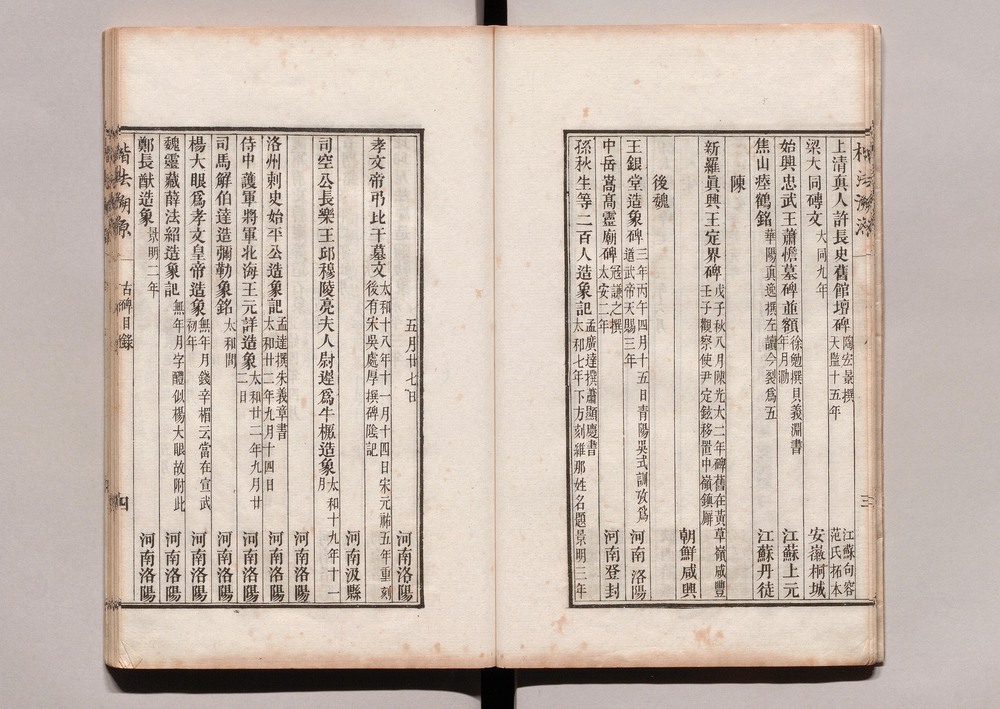 上清真人許長史舊館壇碑 陶宏景撰 天監十五年 江蘇句容 范氏拓本
梁大同磚文 大同九年 安徽桐城
始興忠武王蕭憺墓碑並額 徐勉撰貝義淵書 江蘇上元
焦山瘞鶴銘 華陽真逸撰左讀今裂爲五 江蘇丹徒
陳
新羅眞興王定界碑 戊子秋八月陳光大二年碑舊在黃草嶺咸豐壬子觀察使尹定鉉移置中嶺鎮廨
朝鮮咸興
後魏
王銀堂造象碑 三年丙午四月十五日青陽吳式訓攷爲道武帝天賜三年 河南洛陽
中岳嵩髙靈廟碑 寇謙之撰 太安二年 河南登封
孫秋生等二百人造象記 孟廣達撰蕭顯慶書 太和七年下方刻維那姓名題景明三年
五月廿七日 河南洛陽
孝文帝弔比干墓文 太和十八年十一月十四日宋元祐五年重刻後有宋吳處厚撰碑陰記
河南汲縣
司空公長樂王邱穆陵亮夫人尉遲爲牛橛造象 太和十九年十一月
河南洛陽
洛州刺史始平公造象記 孟達撰朱義章書 太和廿二年九月十四日 河南洛陽
侍中護軍將軍北海王元詳造象 太和廿二年九月廿二日 河南洛陽
司馬解伯達造彌勒象銘 太和間 河南洛陽
楊大眼爲孝文皇帝造象 無年月錢辛楣云當在宣武初年 河南洛陽
魏靈藏薛法紹造象記 無年月字體似楊大眼故附此 河南洛陽
鄭長猷造象 景明二年 河南洛陽
楷法溯源 古碑目錄 四